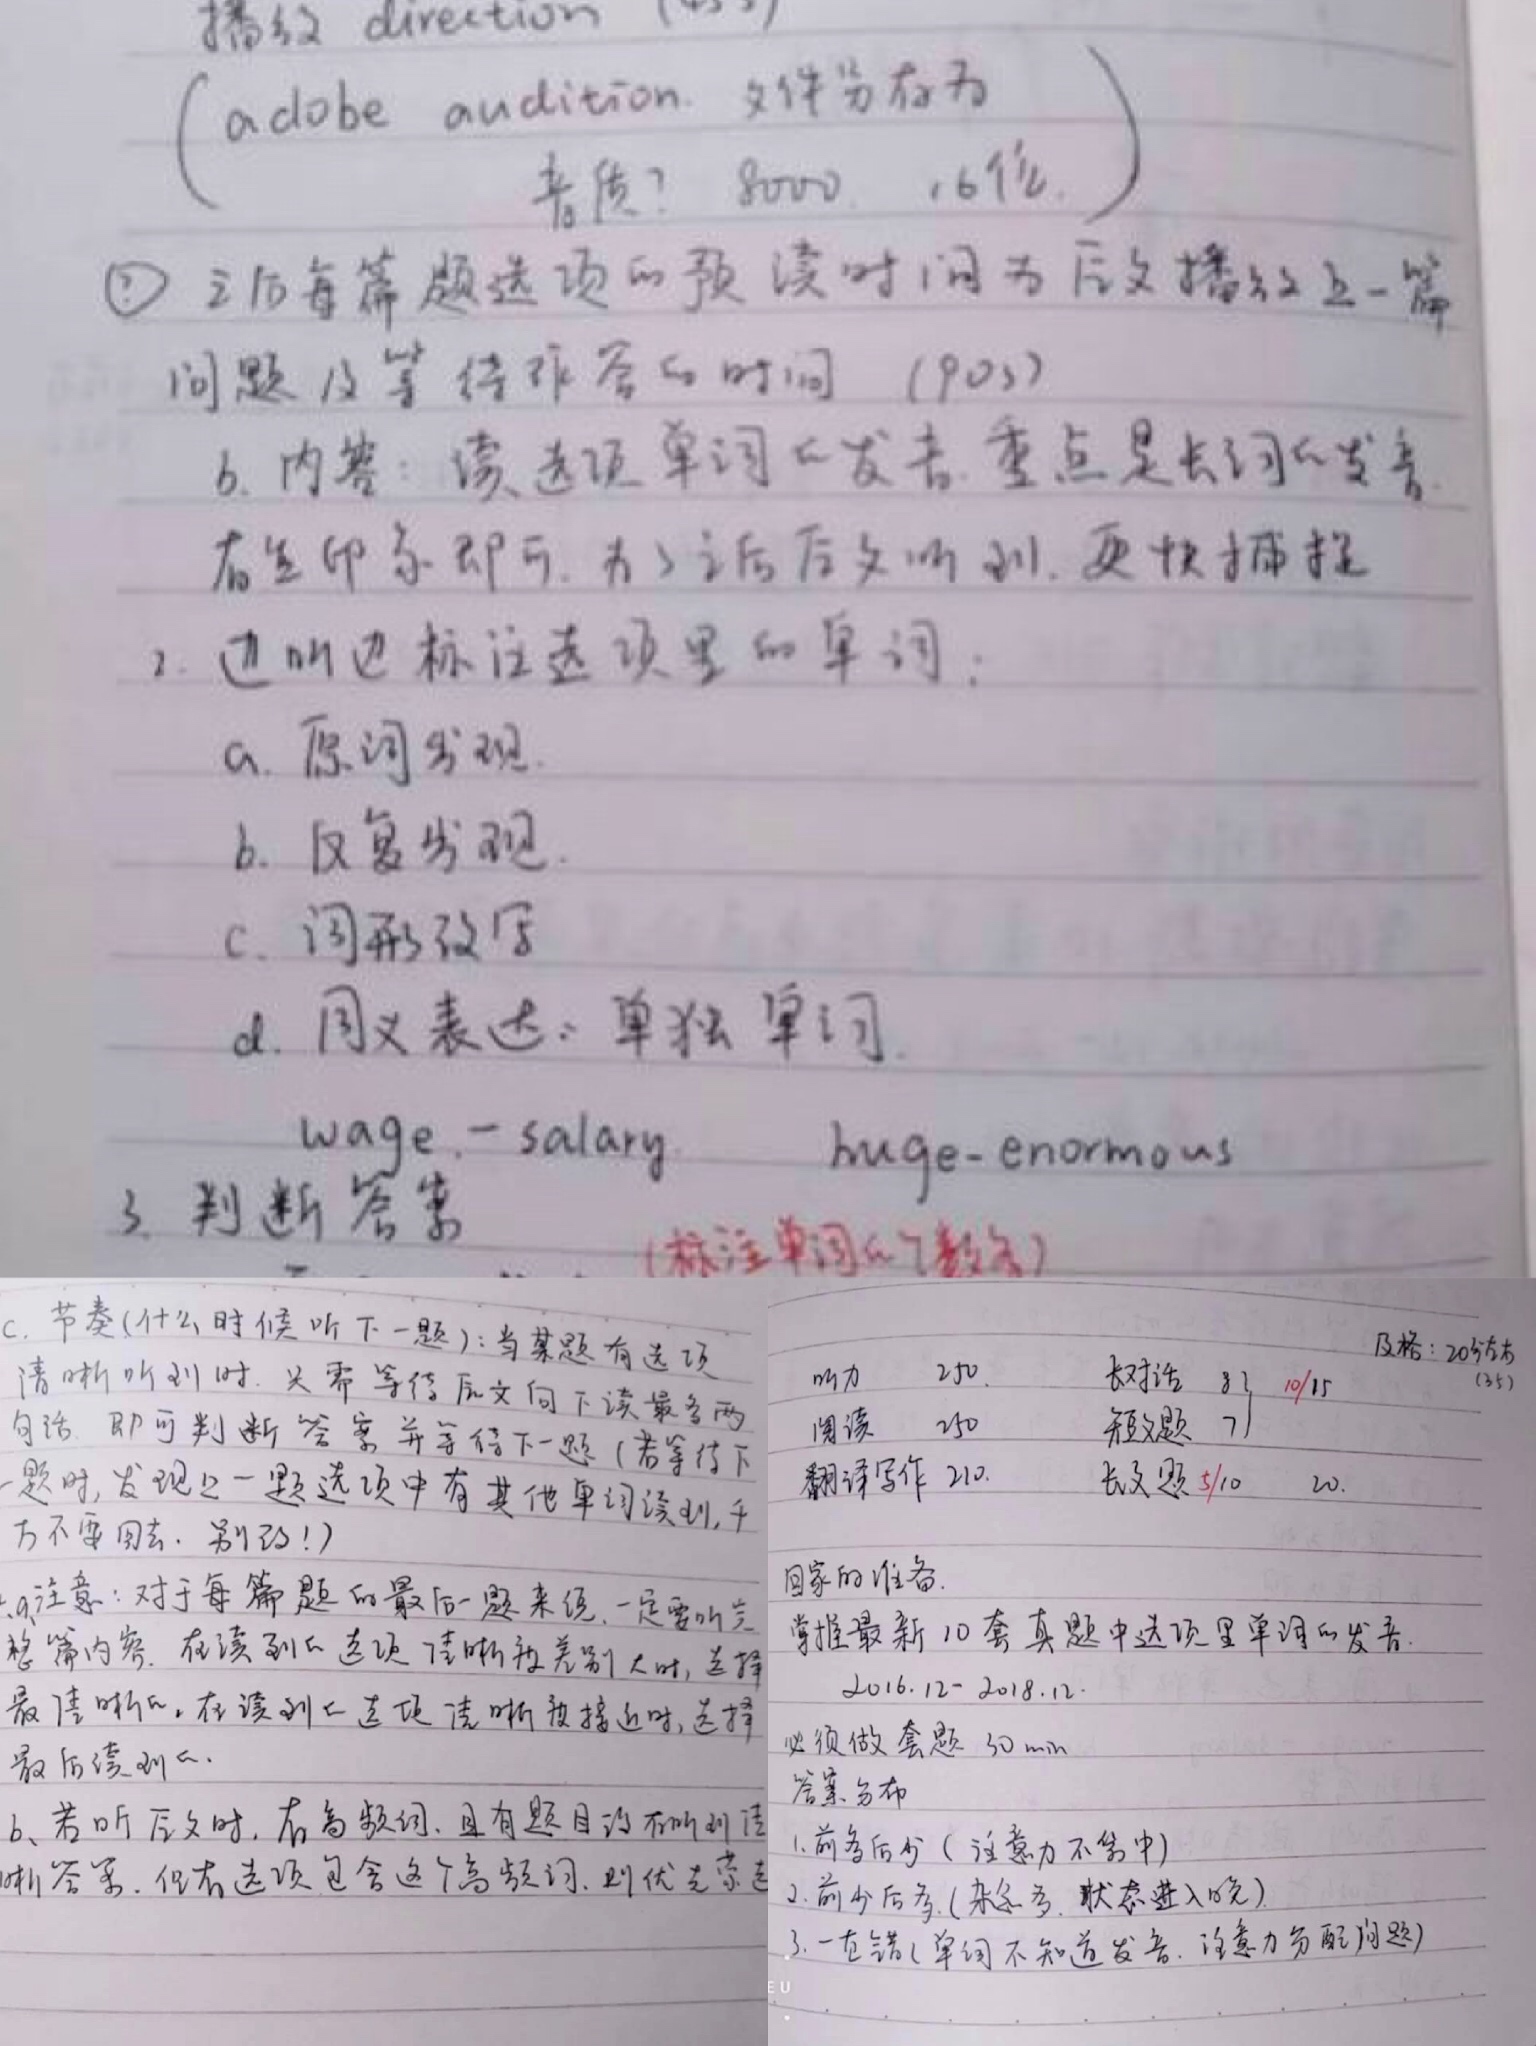 播放 direction (45s)
(adobe audition. 文件另存为
音质? 8000. 16位.)
② 之后每篇题选项的预读时间为原文播放上一篇
问题及等待作答的时间 (90s)
b. 内容: 读选项单词的发音. 重点是长词的发音.
有些印象即可. 为了之后原文听到. 更快捕捉
2. 边听边标注选项里的单词:
a. 原词出现.
b. 反复出现.
c. 词形改写
d. 同义表达: 单独单词.
wage. - salary. huge - enormous
3. 判断答案
(标注单词的个数多)
c. 节奏(什么时候听下一题): 当某题有选项
清晰听到时. 只需等待原文向下读最多两
句话. 即可判断答案并等待下一题 (若等待下
一题时, 发现上一题选项中有其他单词读到, 千
万不要回去. 别改!)
a. 注意: 对于每篇题的最后一题来说, 一定要听完
整篇内容. 在读到的选项清晰度差别大时, 选择
最清晰的. 在读到的选项清晰度接近时, 选择
最后读到的.
b、若听原文时. 有高频词. 且有题目没有听到清
晰答案. 但有选项包含这个高频词. 则优先蒙选
及格: 20分左右
(35)
听力 250. 长对话 8 10/15
阅读 250 短文题 7
翻译写作 210. 长文题 5/10 20.
回家的准备.
掌握最新10套真题中选项里单词的发音.
2016.12 - 2018.12.
必须做套题 30min
答案分布
1. 前多后少 (注意力不集中)
2. 前少后多. (杂念多. 状态进入晚)
3. 一直错 (单词不知道发音. 注意力分配问题)
EU